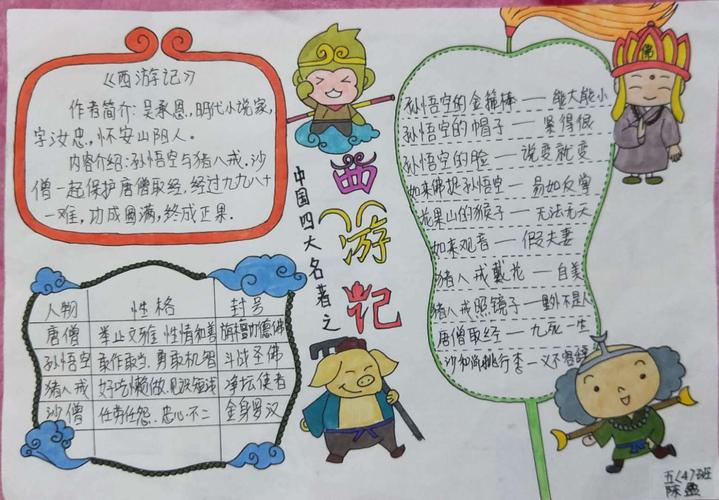 《西游记》
作者简介:吴承恩,明代小说家,
字汝忠,怀安山阴人。
内容介绍:孙悟空与猪八戒.沙
僧一起保护唐僧取经,经过九九八十
一难,功成圆满,终成正果.
中国四大名著之
西游记
人物 性格 封号
唐僧 举止文雅 性情和善 功德佛
孙悟空 敢作敢当.勇敢机智 斗战圣佛
猪八戒 好吃懒做. 净坛使者
沙僧 任劳任怨.忠心不二 金身罗汉
孙悟空的金箍棒——能大能小
孙悟空的帽子——紧得很
孙悟空的脸——说变就变
如来佛捉孙悟空——易如反掌
花果山的猴子——无法无天
如来观音——假夫妻
猪八戒戴花——自美
猪八戒照镜子——里外不是人
唐僧取经——九死一生
沙和尚挑行李——义不容辞
佛
五(4)班
陈